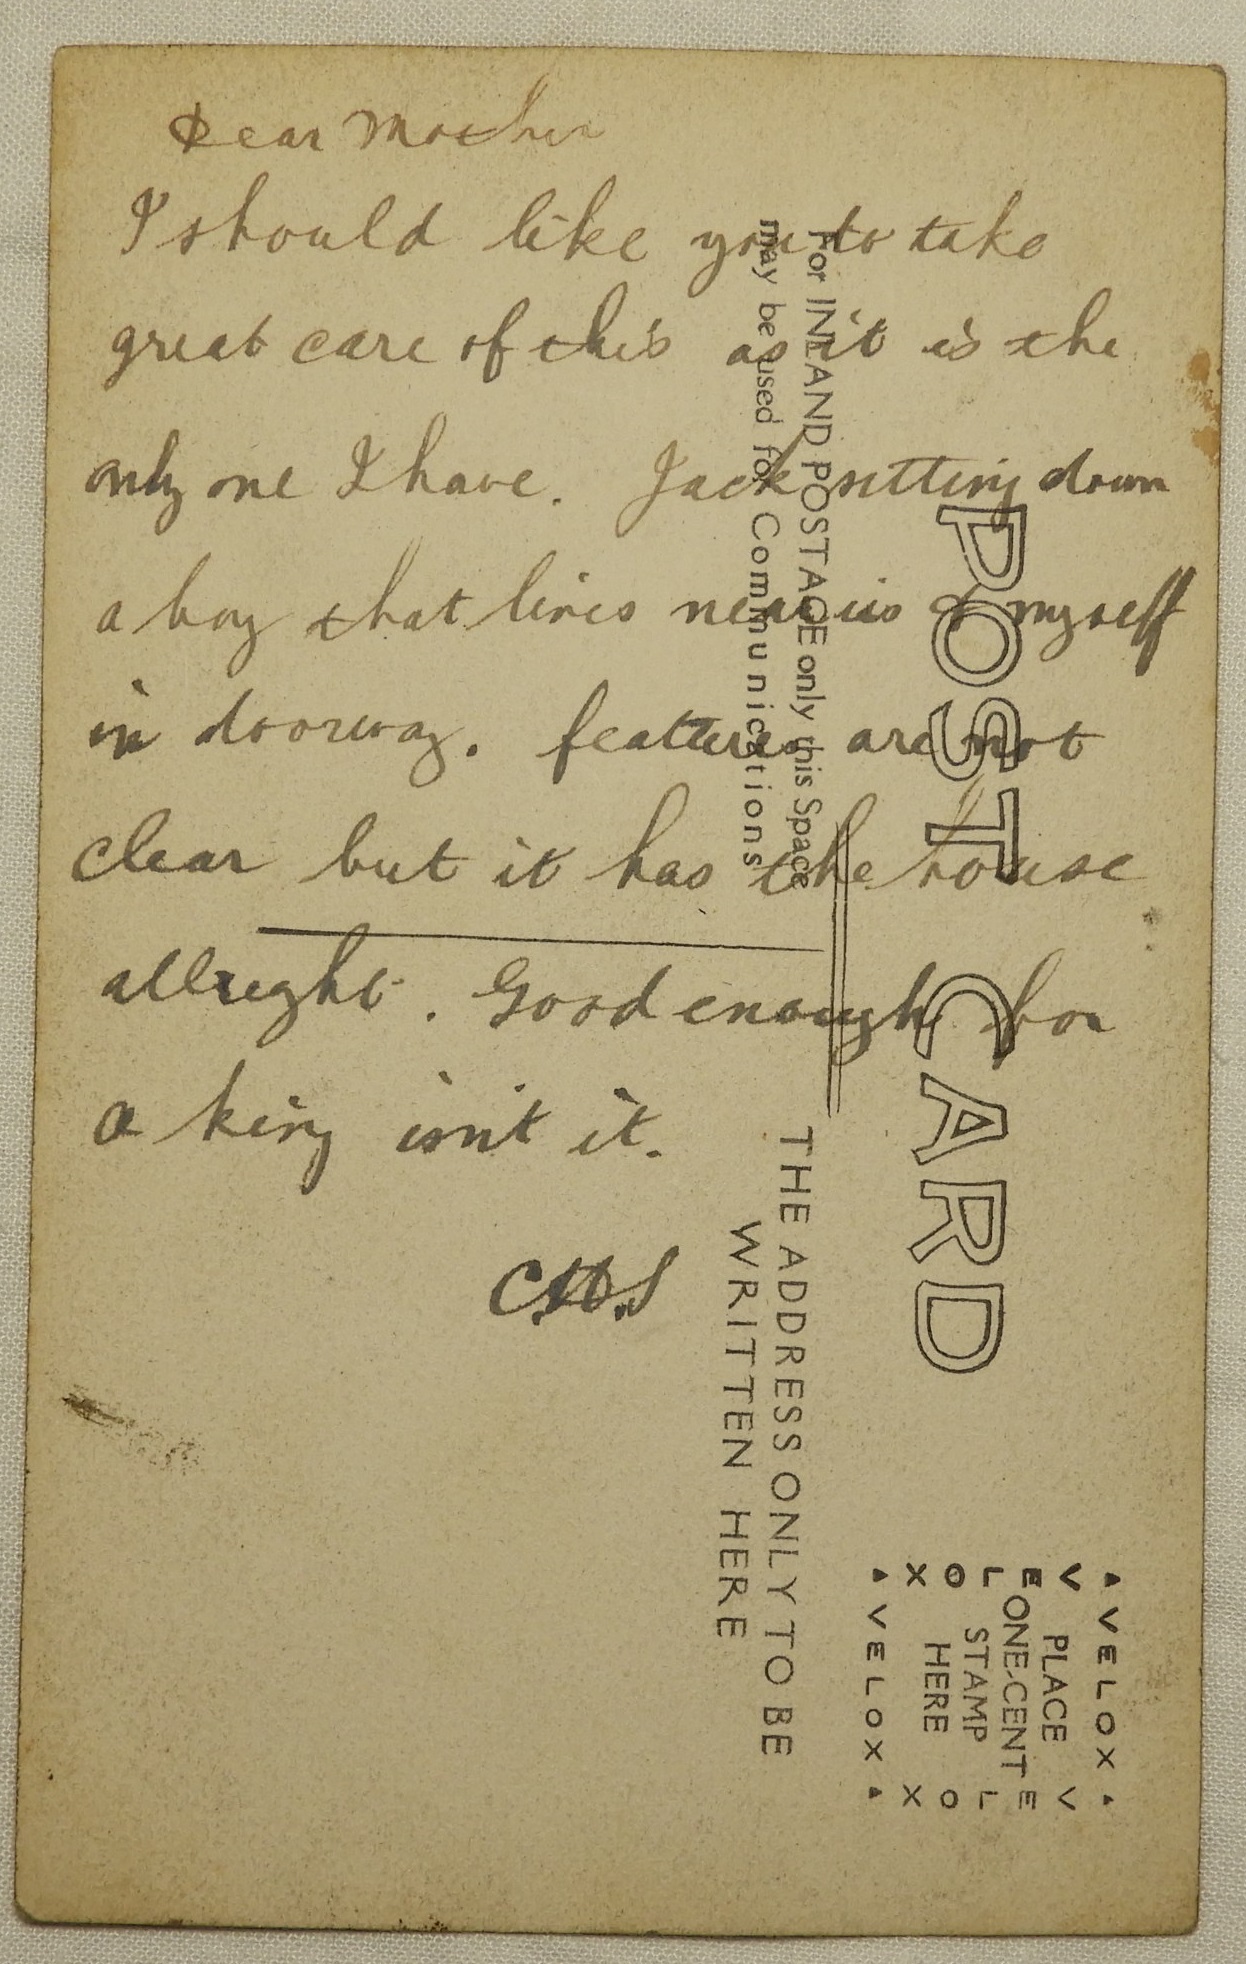 Dear Mother
I should like you to take
great care of this as it is the
only one I have. Jack sitting down
a boy that lives near us & myself
in doorway. features are not
clear but it has the house
allright. Good enough for
a king isn't it.
C.H.S
POST CARD
For INLAND POSTAGE only this Space
may be used for Communications
THE ADDRESS ONLY TO BE
WRITTEN HERE
VELOX
PLACE
ONE-CENT
STAMP
HERE
VELOX
VELOX
VELOX